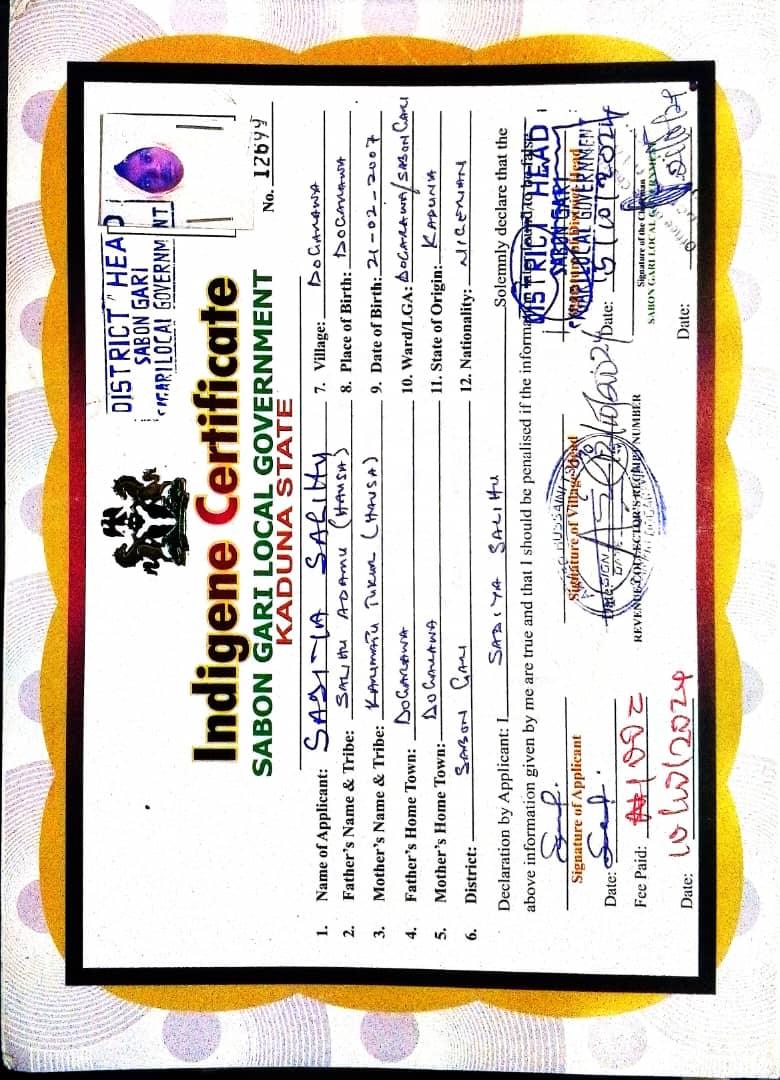 DISTRICT HEAD
SABON GARI
LOCAL GOVERNMENT
No. 12699
Indigene Certificate
SABON GARI LOCAL GOVERNMENT
KADUNA STATE
1. Name of Applicant: SADIYA SALIHU
2. Father's Name & Tribe: SALIHU ADAMU (HAUSA)
3. Mother's Name & Tribe: KARIMATU TUKUR (HAUSA)
4. Father's Home Town: DOGARAWA
5. Mother's Home Town: DOGARAWA
6. District: SABON GARI
7. Village: DOGARAWA
8. Place of Birth: DOGARAWA
9. Date of Birth: 21-02-2007
10. Ward/LGA: DOGARAWA/SABON GARI
11. State of Origin: KADUNA
12. Nationality: NIGERIAN
Declaration by Applicant: I SADIYA SALIHU Solemnly declare that the
above information given by me are true and that I should be penalised if the information
Signature of Applicant
Signature of Village Head
DISTRICT HEAD
SABON GARI
LOCAL GOVERNMENT
Date:
Date:
Date: 15/10/2024
Fee Paid: ₦100=
REVENUE COLLECTOR'S RECEIPT NUMBER
Signature of the Chairman
SABON GARI LOCAL GOVERNMENT
Date: 10/10/2024
Date: